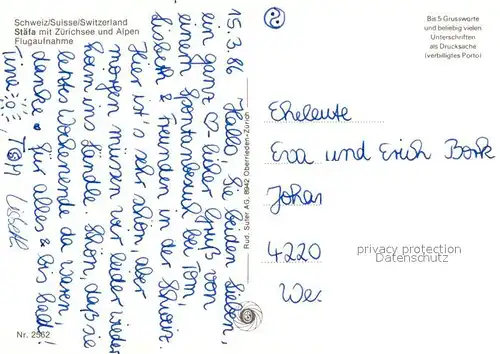 Schweiz/Suisse/Switzerland
Stäfa mit Zürichsee und Alpen
Flugaufnahme
Bis 5 Grussworte
und beliebig vielen
Unterschriften
als Drucksache
(verbilligtes Porto)
15.3.86 Hallo, Sie beiden Lieben,
ein ganz ♡-licher Gruß von
einem Spontanbesuch bei Tom,
Lisbeth & Freunden in der Schweiz.
Hier ist's sehr schön, aber
morgen müssen wir leider wieder
heim ins Ländle. Schön, daß sie
letztes Wochenende da waren,
danke für alles & bis bald!
Tom Lisbeth
Rud. Suter AG, 8942 Oberrieden-Zürich
Eheleute
Eva und Erich Bork
Johan
4220
We
privacy protection
Datenschutz
Nr. 2562